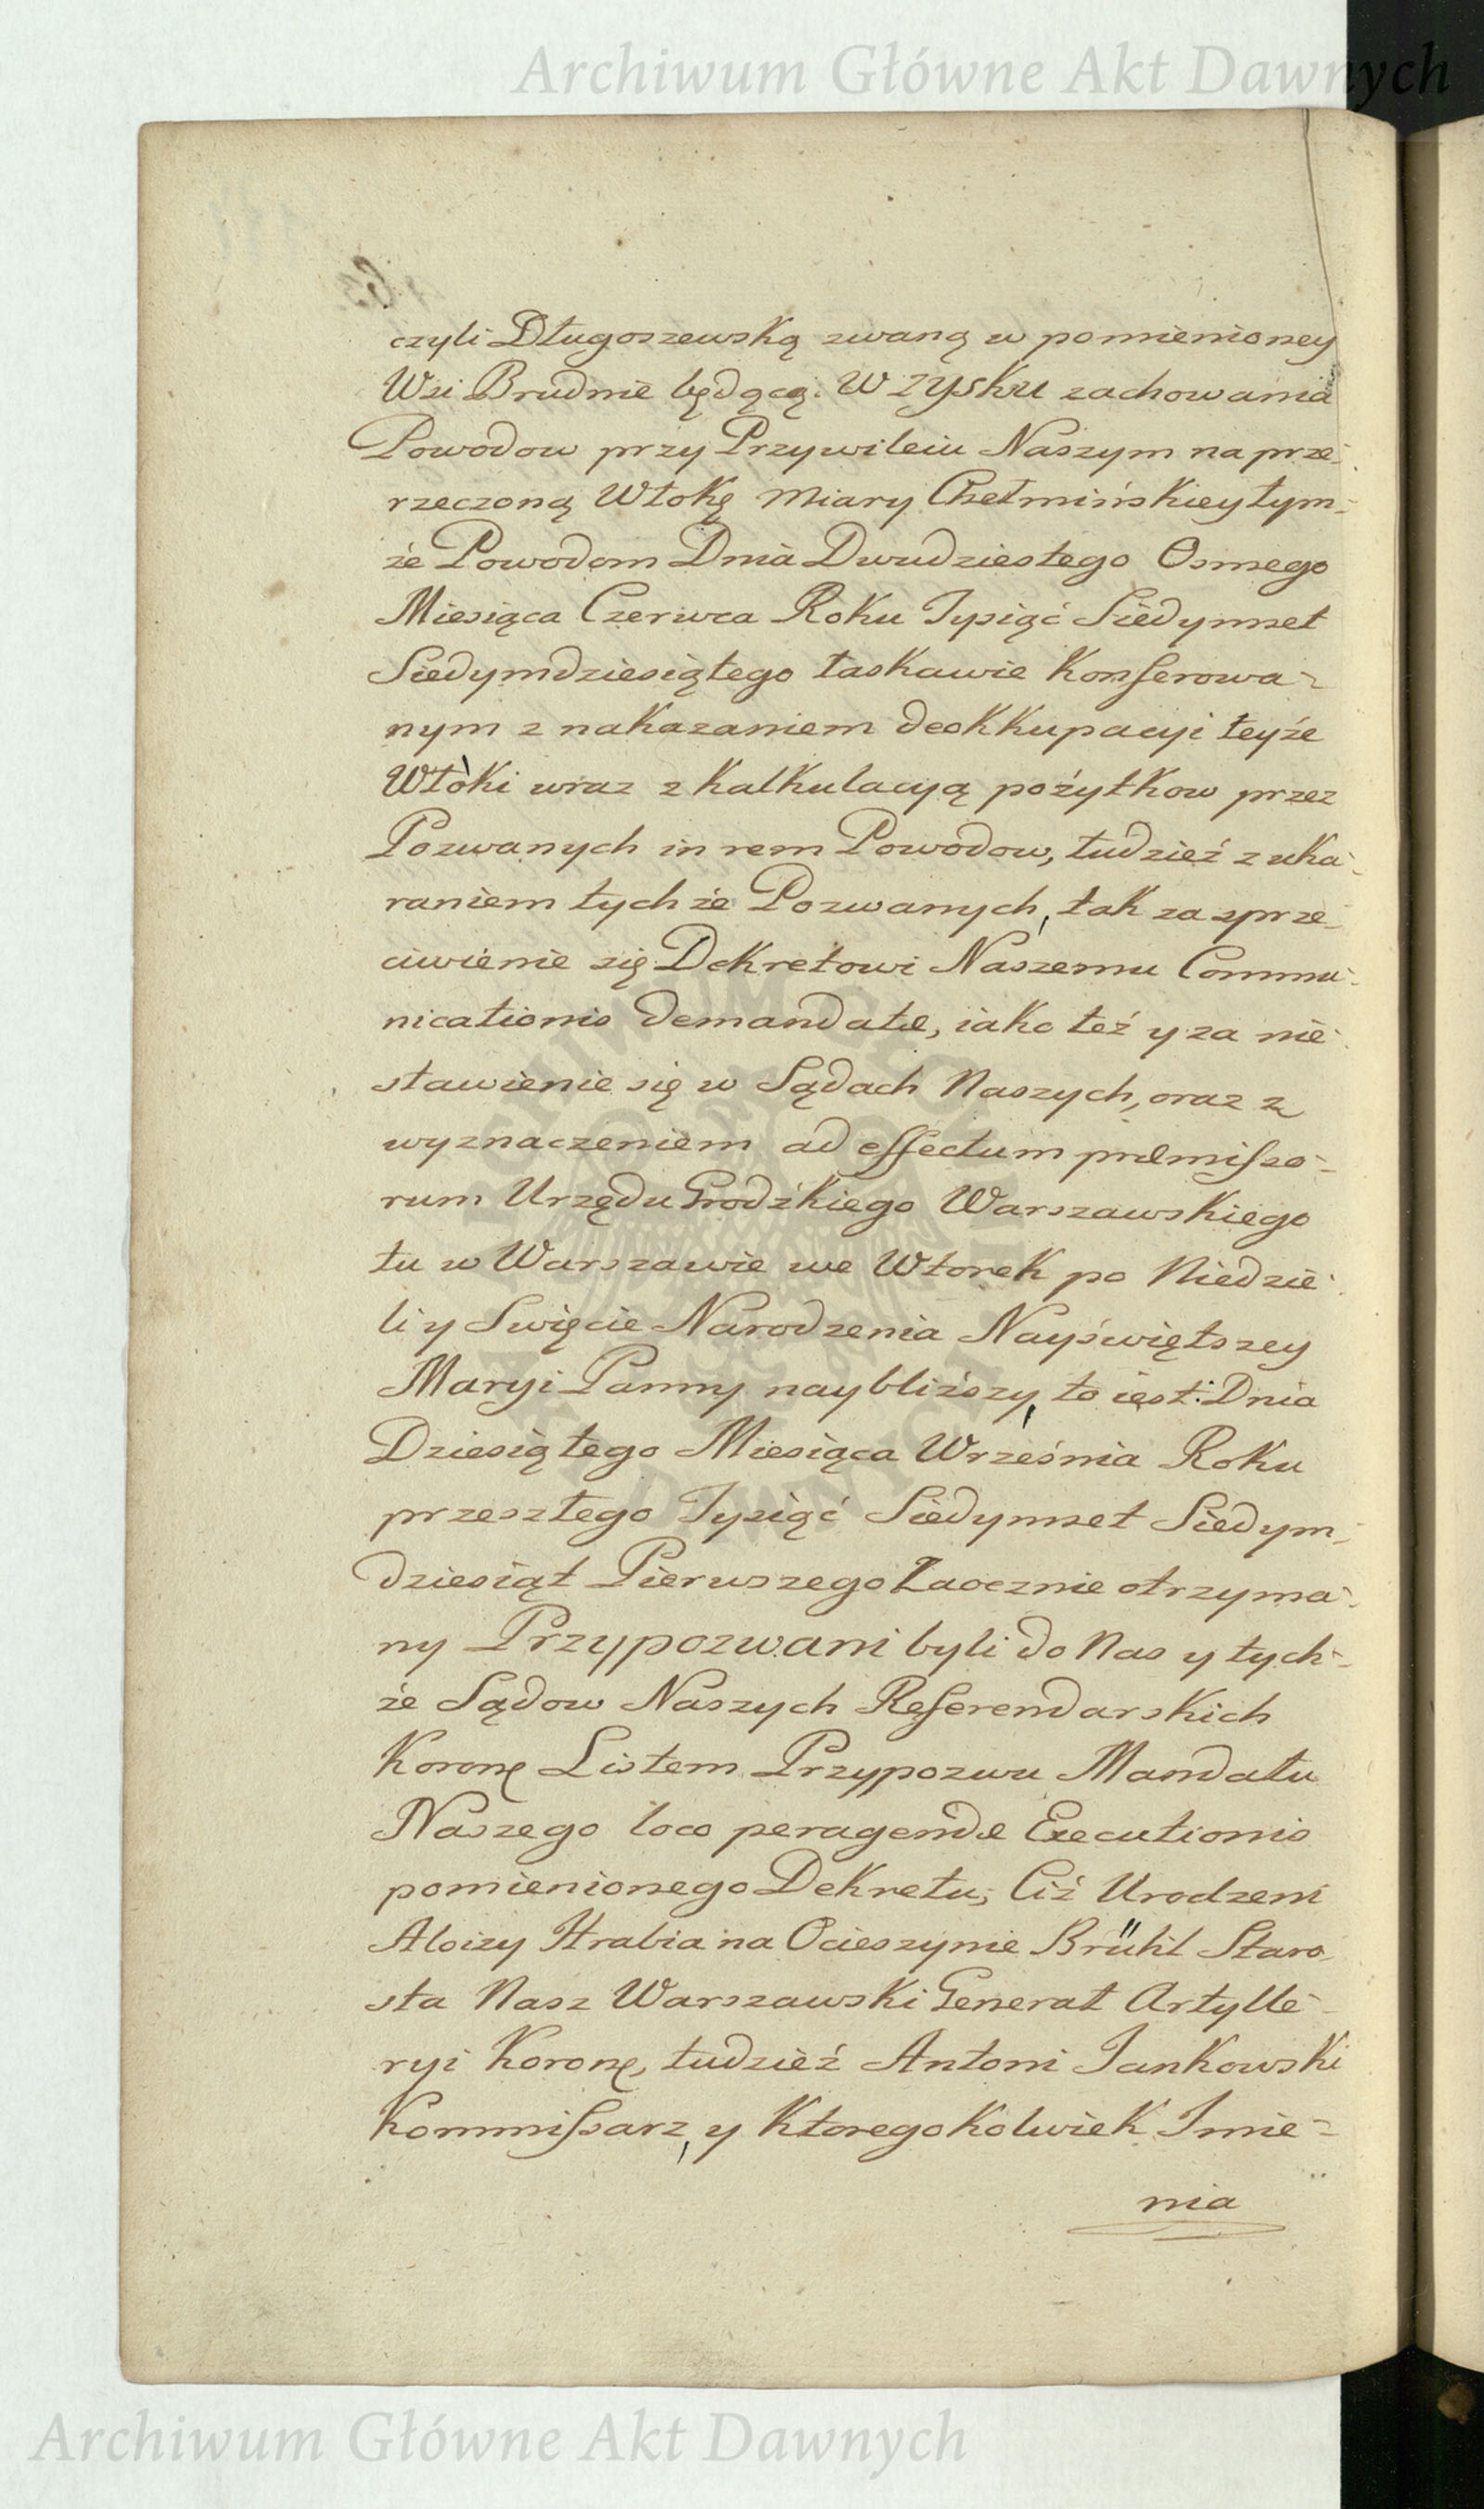 Archiwum Główne Akt Dawnych
czyli Długoszewską zwaną w pomienioney
Wsi Brudnie będącą. W zysku zachowania
Powodow przy Przywileiu Naszym na prze-
rzeczoną Włokę miary Chełmińskiey tym-
że Powodom Dnia Dwudziestego Osmego
Miesiąca Czerwca Roku Tysiąć Siedymset
Siedymdziesiątego łaskawie konferowa-
nym z nakazaniem deokkupacyi teyże
Włoki wraz z kalkulacyą pożytkow przez
Pozwanych in rem Powodow, tudzież z uka-
raniem tychże Pozwanych, tak za sprze-
ciwienie się Dekretowi Naszemu Commu-
nicationis demandatæ, iako też y za nie-
stawienie się w Sądach Naszych, oraz z
wyznaczeniem ad effectum præmisso-
rum Urzędu Grodzkiego Warszawskiego
tu w Warszawie we Wtorek po Niedzie-
li y Swięcie Narodzenia Nayświętszey
Maryi Panny naybliższy, to iest: Dnia
Dziesiątego Miesiąca Września Roku
przeszłego Tysiąć Siedymset Siedym-
dziesiąt Pierwszego Zaocznie otrzyma-
ny Przypozwani byli do Nas y tych-
że Sądow Naszych Referendarskich
Koronę Listem Przypozwu Mandatu
Naszego loco peragendæ Executionis
pomienionego Dekretu; Ciż Urodzeni
Aloizy Hrabia na Ocieszynie Brühl Staro-
sta Nasz Warszawski Generał Artylle-
ryi Koronę, tudzież Antoni Jankowski
Kommissarz, y ktoregokolwiek Imie-
nia
Archiwum Główne Akt Dawnych